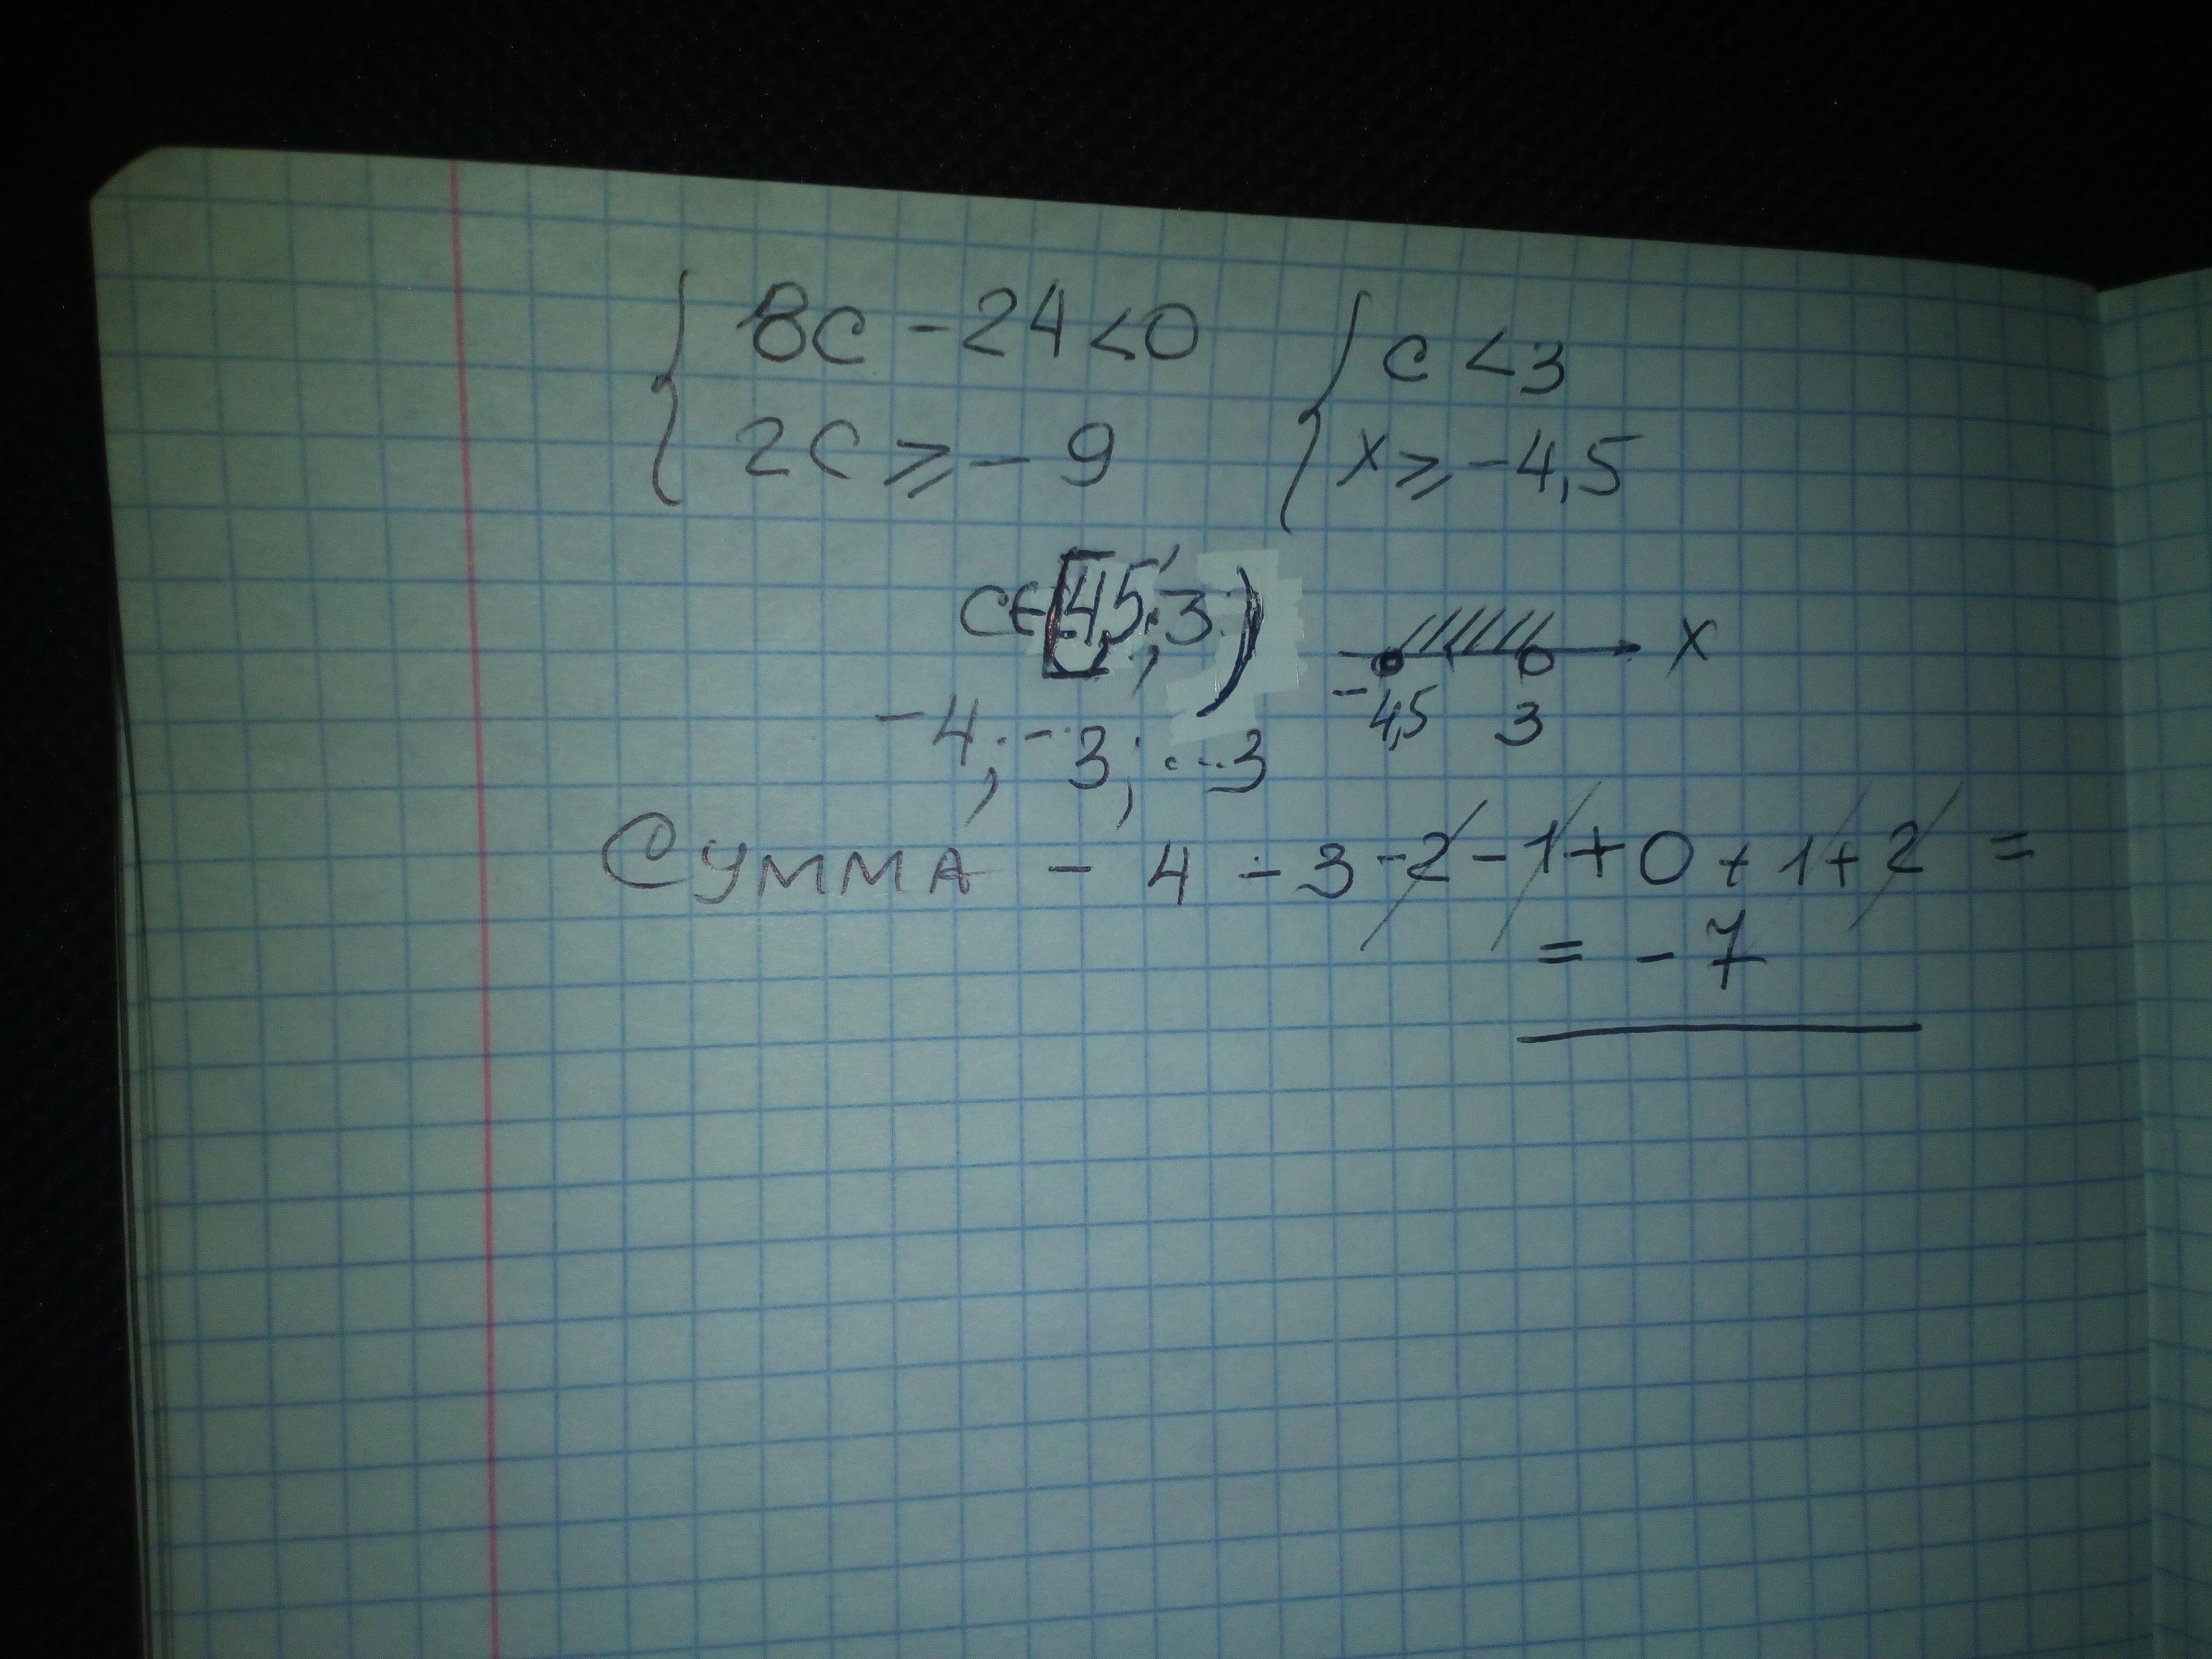 8c - 24 < 0
2c ≥ - 9
c < 3
x ≥ -4,5
c∈[-4,5; 3)
x
-4,5 3
-4; -3; ...3
Сумма - 4 - 3 - 2 - 1 + 0 + 1 + 2 =
= - 7